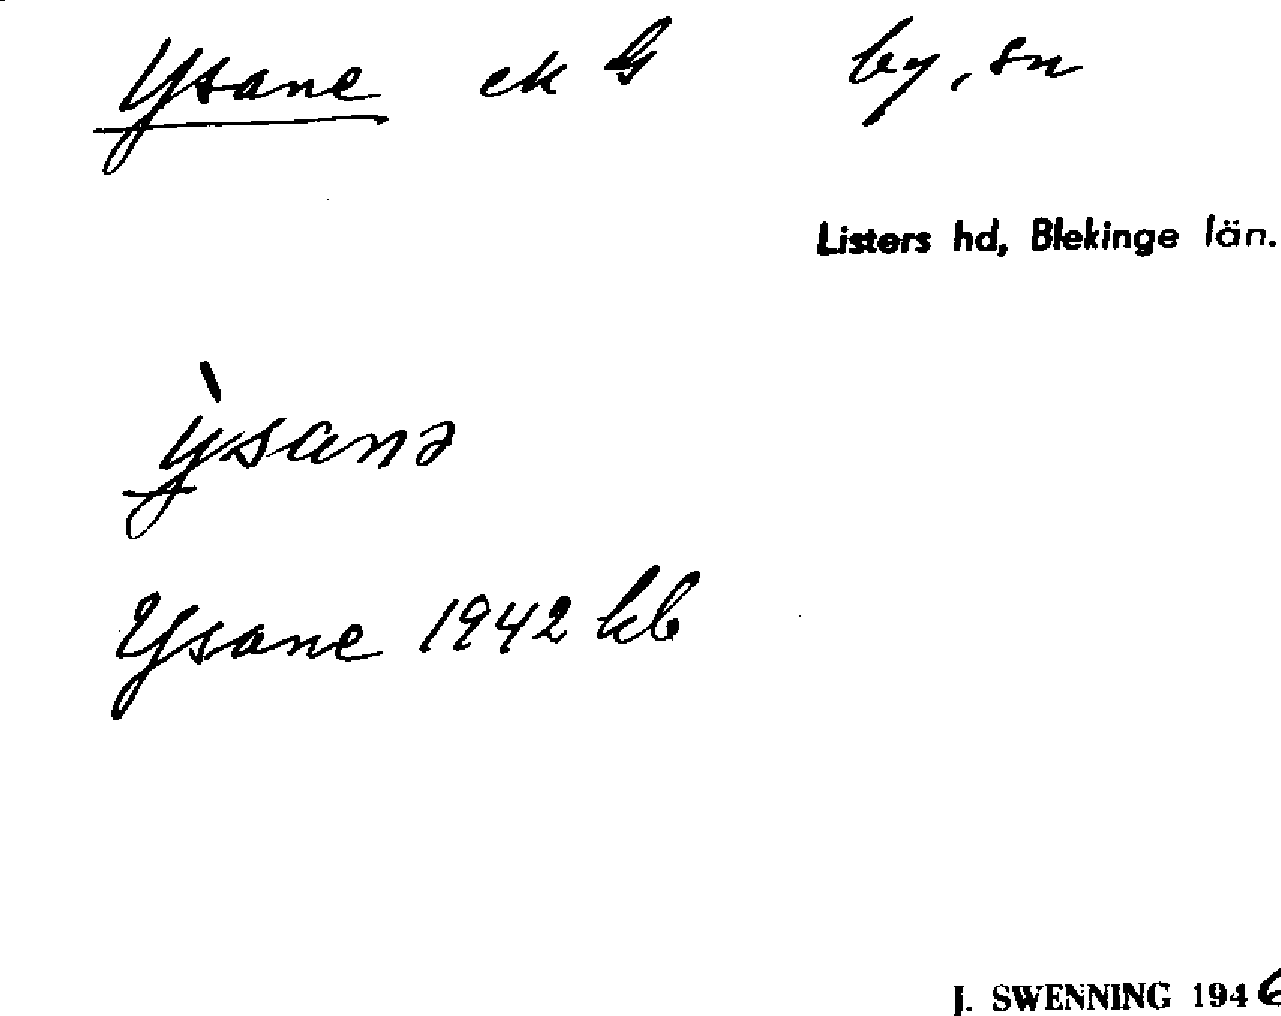 Ysane ek G by, sn
Listers hd, Blekinge län.
ỳsanə
Ysane 1942 kb
J. SWENNING 1946